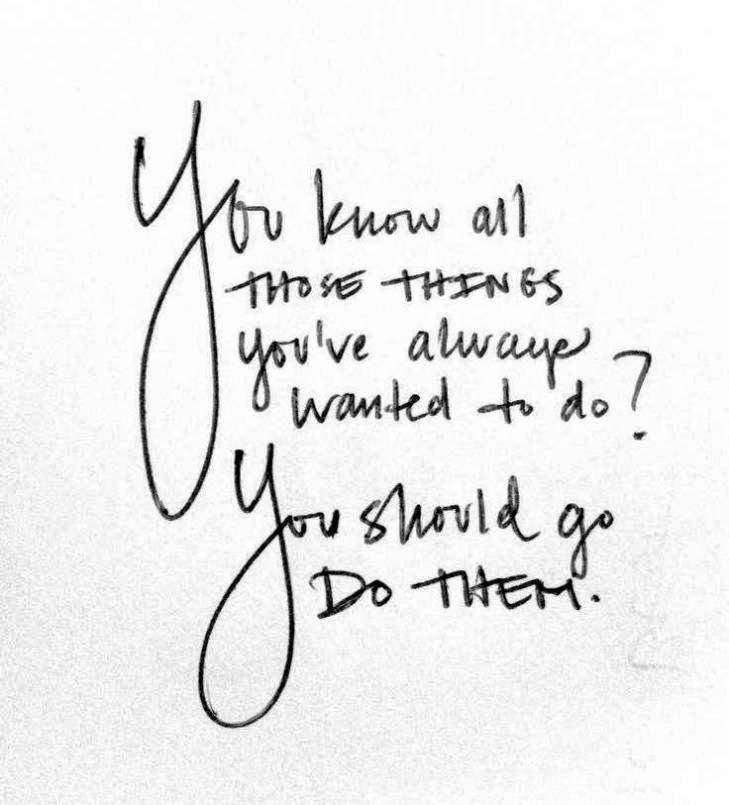 You know all
THOSE THINGS
you've always
wanted to do?
You should go
DO THEM.